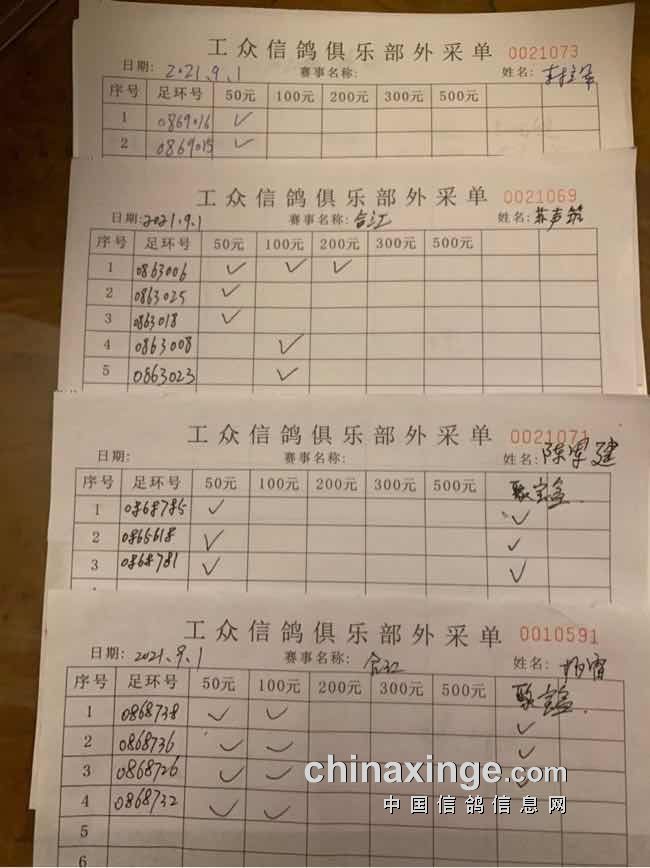 工众信鸽俱乐部外采单 0021073
日期: 2021.9.1 赛事名称: 姓名:
序号 足环号 50元 100元 200元 300元 500元
1 0869016 ✓
2 0869015 ✓
工众信鸽俱乐部外采单 0021069
日期: 2021.9.1 赛事名称: 合江 姓名: 苏声
序号 足环号 50元 100元 200元 300元 500元
1 0863006 ✓ ✓ ✓
2 0863025 ✓
3 0863018 ✓
4 0863008 ✓
5 0863023 ✓
工众信鸽俱乐部外采单 0021071
日期: 赛事名称: 姓名: 陈军建
序号 足环号 50元 100元 200元 300元 500元 聚宝盆
1 0868785 ✓ ✓
2 0865618 ✓ ✓
3 0868781 ✓ ✓
工众信鸽俱乐部外采单 0010591
日期: 2021.9.1 赛事名称: 合江 姓名:
序号 足环号 50元 100元 200元 300元 500元 聚宝盆
1 0868738 ✓ ✓ ✓
2 0868736 ✓ ✓ ✓
3 0868726 ✓ ✓ ✓
4 0868732 ✓ ✓
5
6
chinaxinge.com
中国信鸽信息网